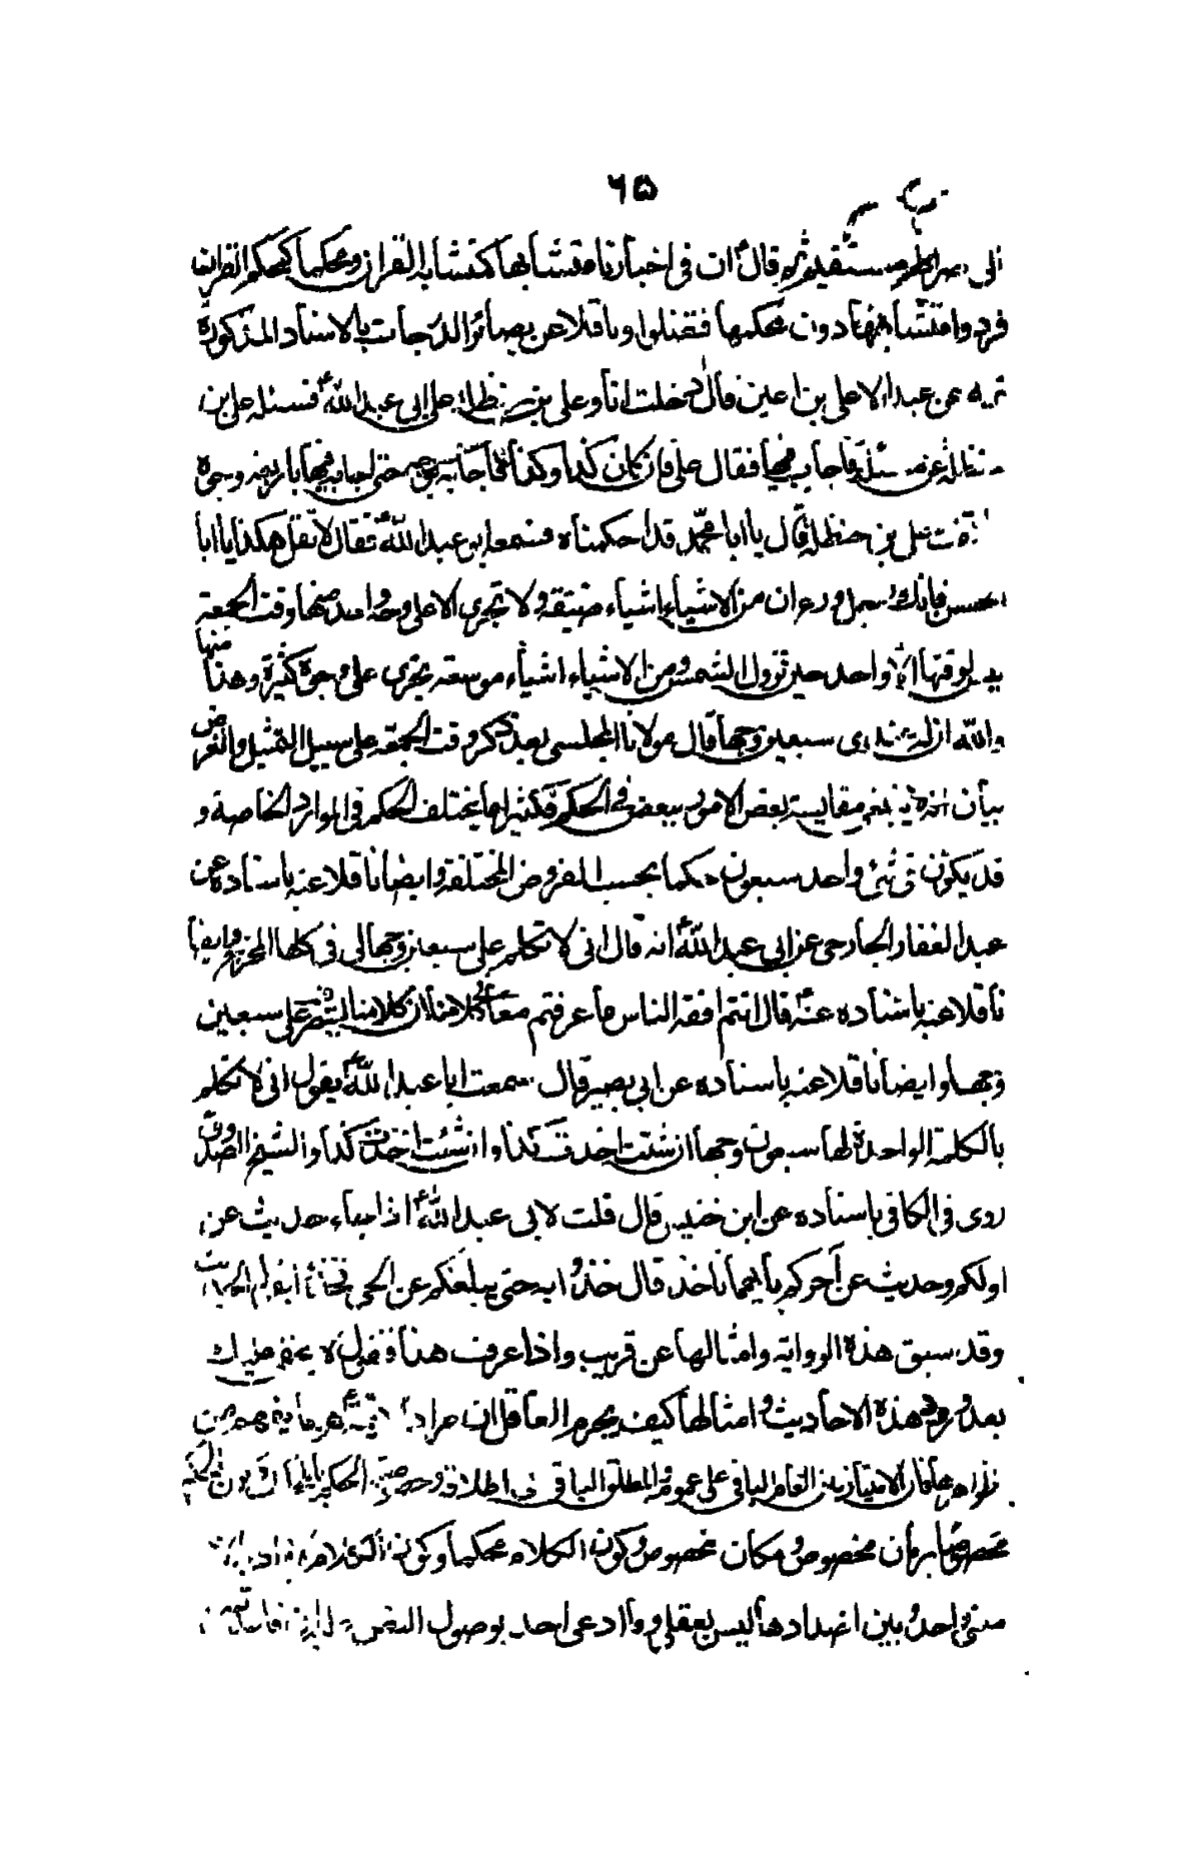 ٦٥
الى صراط مستقيم ثم قال ان فى اخبارنا متشابها كمتشابه القران ومحكما كمحكم القران
فردوا متشابهها دون محكمها فتضلوا وناقلا عن بصائر الدرجات بالاسناد المذكورة
فيه عن عبد الاعلى بن اعين قال دخلت انا وعلى بن حنظلة على ابى عبد الله ع فسئله على بن
حنظلة عن مسئلة فاجاب فيها فقال على فان كان كذا وكذا فاجابه حتى اجابه فيها باربعة وجوه
على بن حنظلة قال يا ابا محمد قد احكمناه فسمعه ابو عبد الله ع فقال لا تقل هكذا يا ابا
الحسن فانك رجل ورع ان من الاشياء اشياء ضيقة ولا تجرى الا على وجه واحد منها وقت الجمعة
ليس لوقتها الا واحد حين تزول الشمس ومن الاشياء اشياء موسعة تجرى على وجوه كثيرة وهذا منها
والله ان له عندى سبعين وجها قال مولانا المجلسى بعد ذكر وقت الجمعة على سبيل التمثيل والغرض
بيان انه لا ينبغى مقايسة بعض الامور ببعض فى الحكم فكثيرا ما يختلف الحكم فى الموارد الخاصة و
قد يكون فى شئ واحد سبعون حكما بحسب الفروض المختلفة وايضا ناقلا عنه باسناده عن
عبد الغفار الجازى عن ابى عبد الله ع انه قال انى لا تكلم على سبعين وجها لى فى كلها المخرج وايضا
ناقلا عنه باسناده عنه ع قال انتم افقه الناس ما عرفتم معانى كلامنا ان كلامنا لينصرف على سبعين
وجها وايضا ناقلا عنه باسناده عن ابى بصير قال سمعت ابا عبد الله ع يقول انى لا تكلم
بالكلمة الواحدة لها سبعون وجها ان شئت اخذت كذا وان شئت اخذت كذا والشيخ الصدوق
روى فى الكافى باسناده عن ابن خنيس قال قلت لابى عبد الله ع اذا جاء حديث عن
اولكم وحديث عن آخركم بايهما ناخذ قال خذوا به حتى يبلغكم عن الحى الحديث
وقد سبق هذه الرواية وامثالها عن قريب واذا عرفت هذا فنقول لا يخفى عليك
بعد ورود هذه الاحاديث وامثالها كيف يجزم العاقل ان مراد ما يفهم من
ظواهرها فان الامتياز بين العام الباقى على عمومه والمطلق الباقى على اطلاقه الحكم
مخصوصا بزمان مخصوص ومكان مخصوص وكون الكلام محكما وكون
واحد وبين اضدادها ليس بعقلى ولو ادعى احد بوصول النص